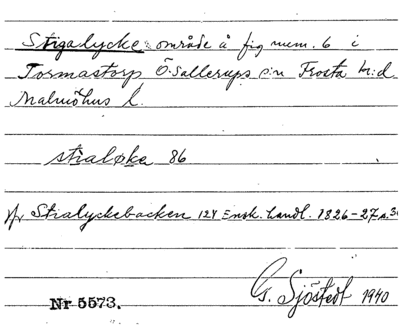 Stigalycke: område å fig num. 6 i
Tormastorp Ö. Sallerups s:n Frosta h:d.
Malmöhus l.
stialøka 86
jfr Stialyckebacken 124 Ensk. handl. 1826-27 n. 30
Nr 5573.
G. Sjöstedt 1940